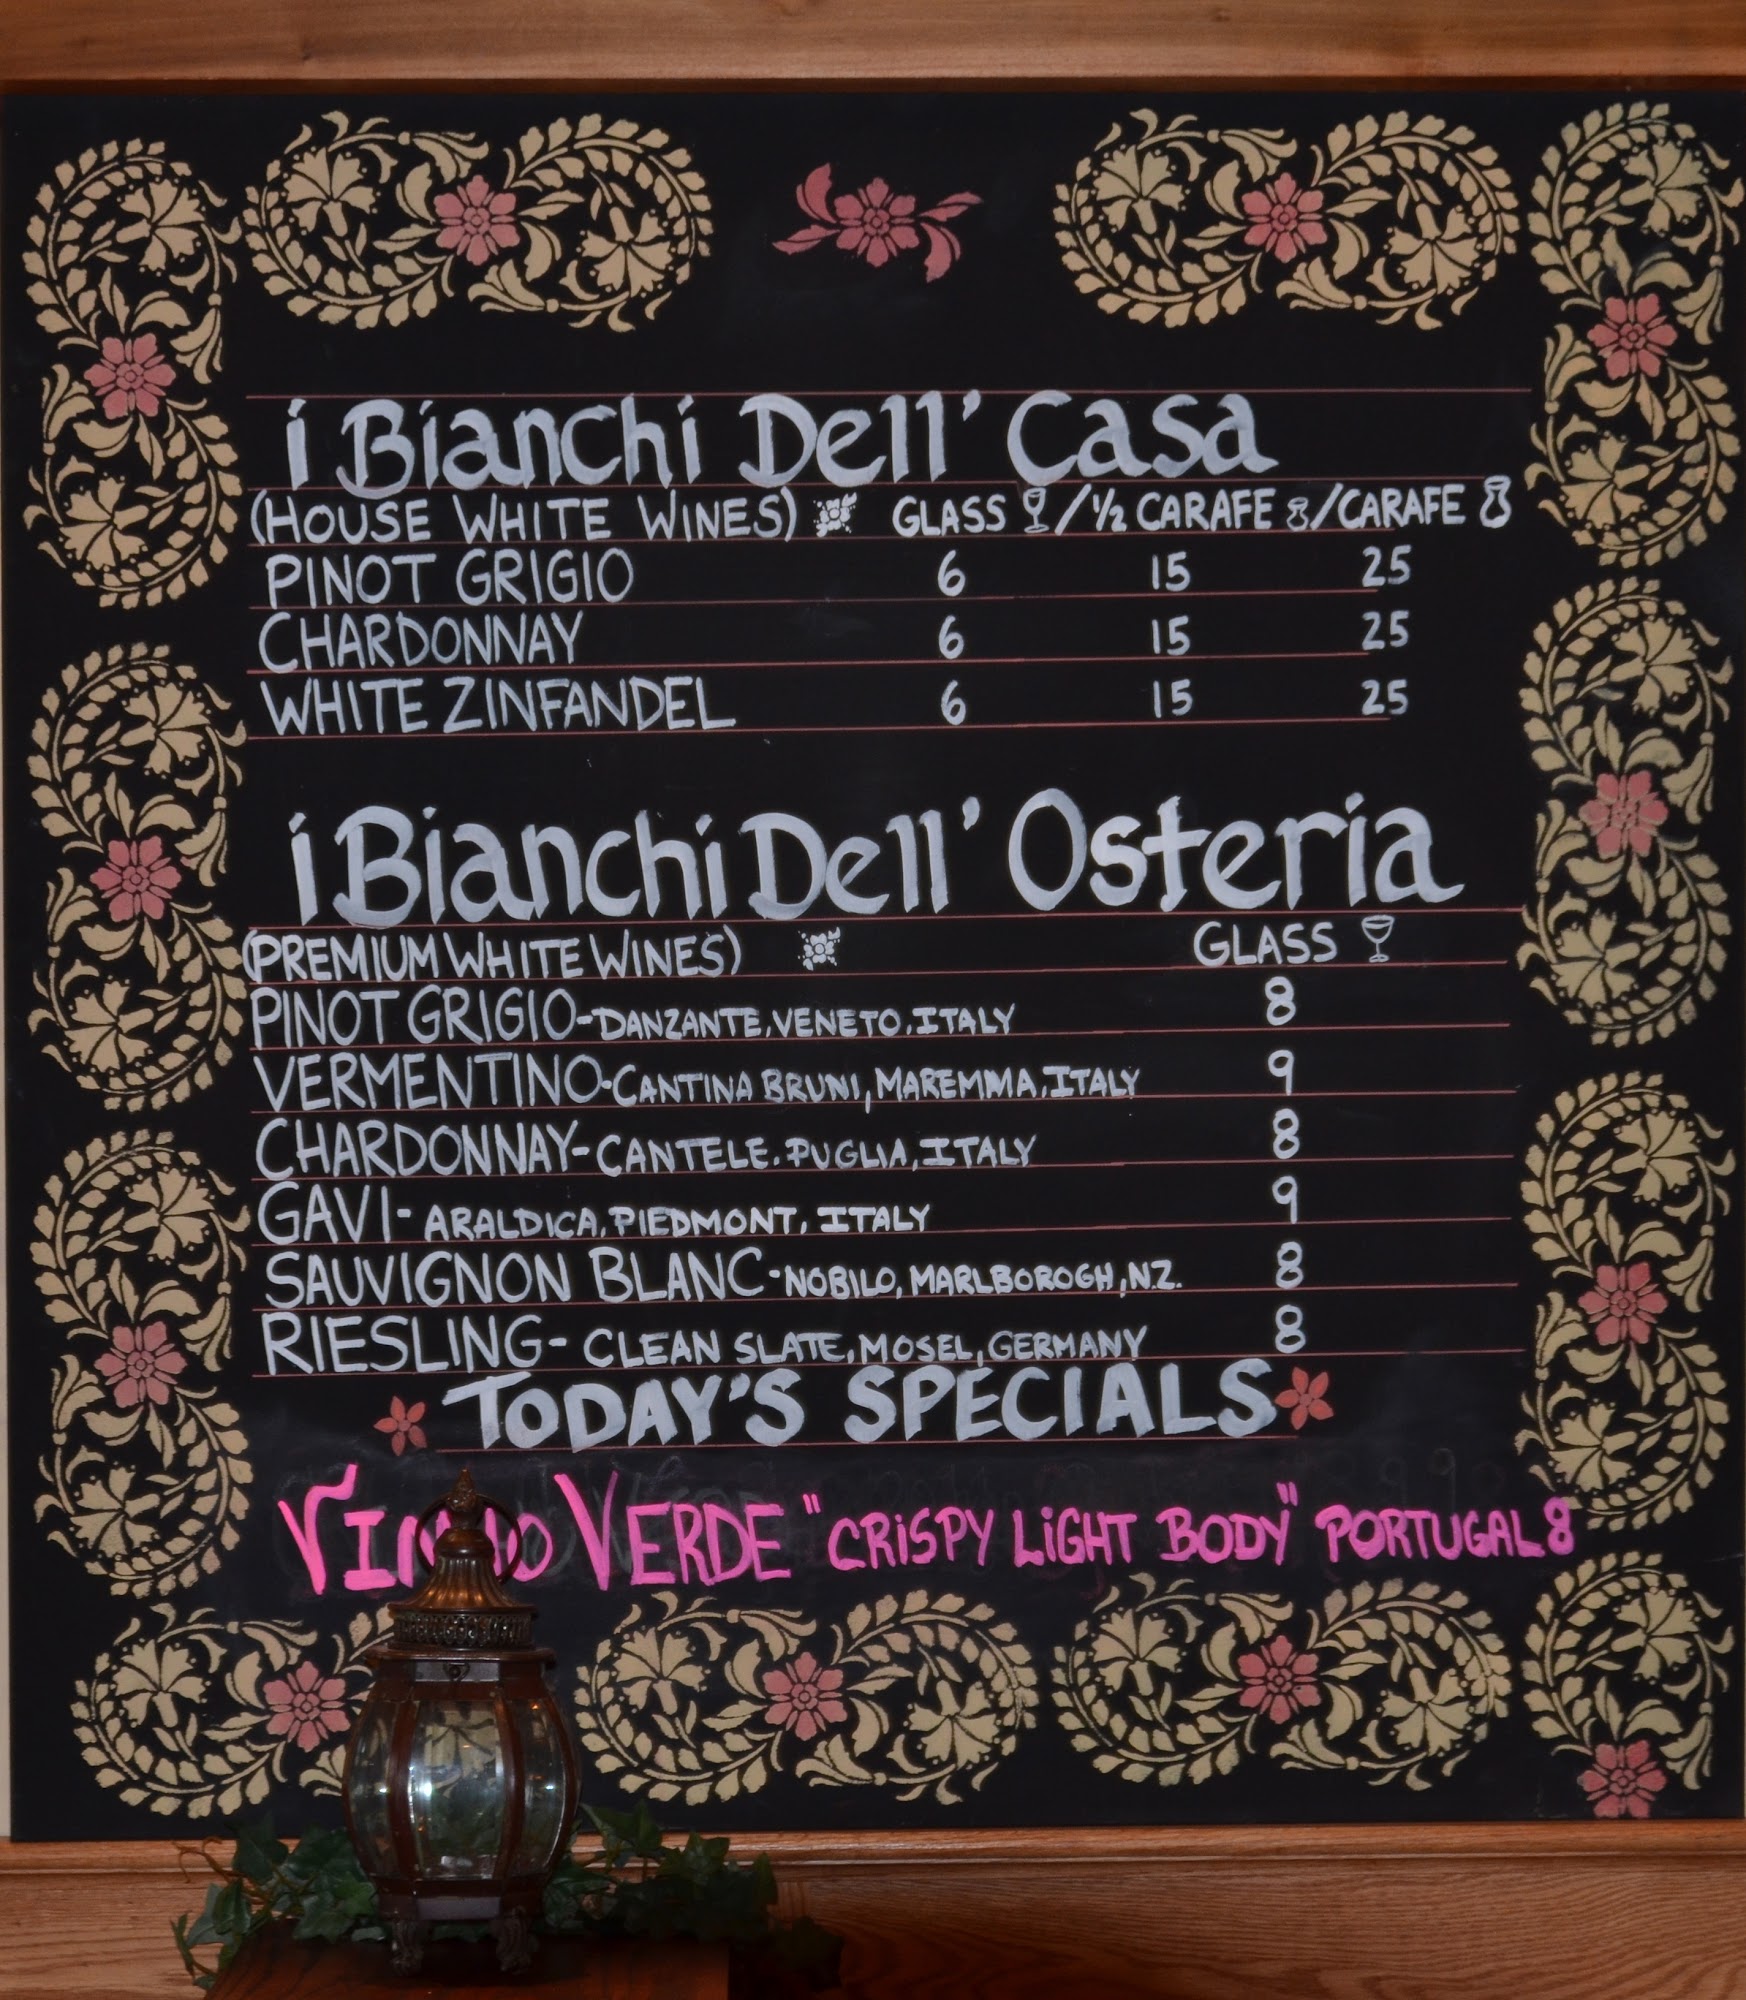 i Bianchi Dell' Casa
(HOUSE WHITE WINES) GLASS / ½ CARAFE / CARAFE
PINOT GRIGIO 6 15 25
CHARDONNAY 6 15 25
WHITE ZINFANDEL 6 15 25
i Bianchi Dell' Osteria
(PREMIUM WHITE WINES) GLASS
PINOT GRIGIO-DANZANTE, VENETO, ITALY 8
VERMENTINO-CANTINA BRUNI, MAREMMA, ITALY 9
CHARDONNAY-CANTELE. PUGLIA, ITALY 8
GAVI-ARALDICA, PIEDMONT, ITALY 9
SAUVIGNON BLANC-NOBILO, MARLBOROGH, N.Z. 8
RIESLING-CLEAN SLATE, MOSEL, GERMANY 8
TODAY'S SPECIALS
VERDE "CRiSPY LiGHT BODY" PORTUGAL 8